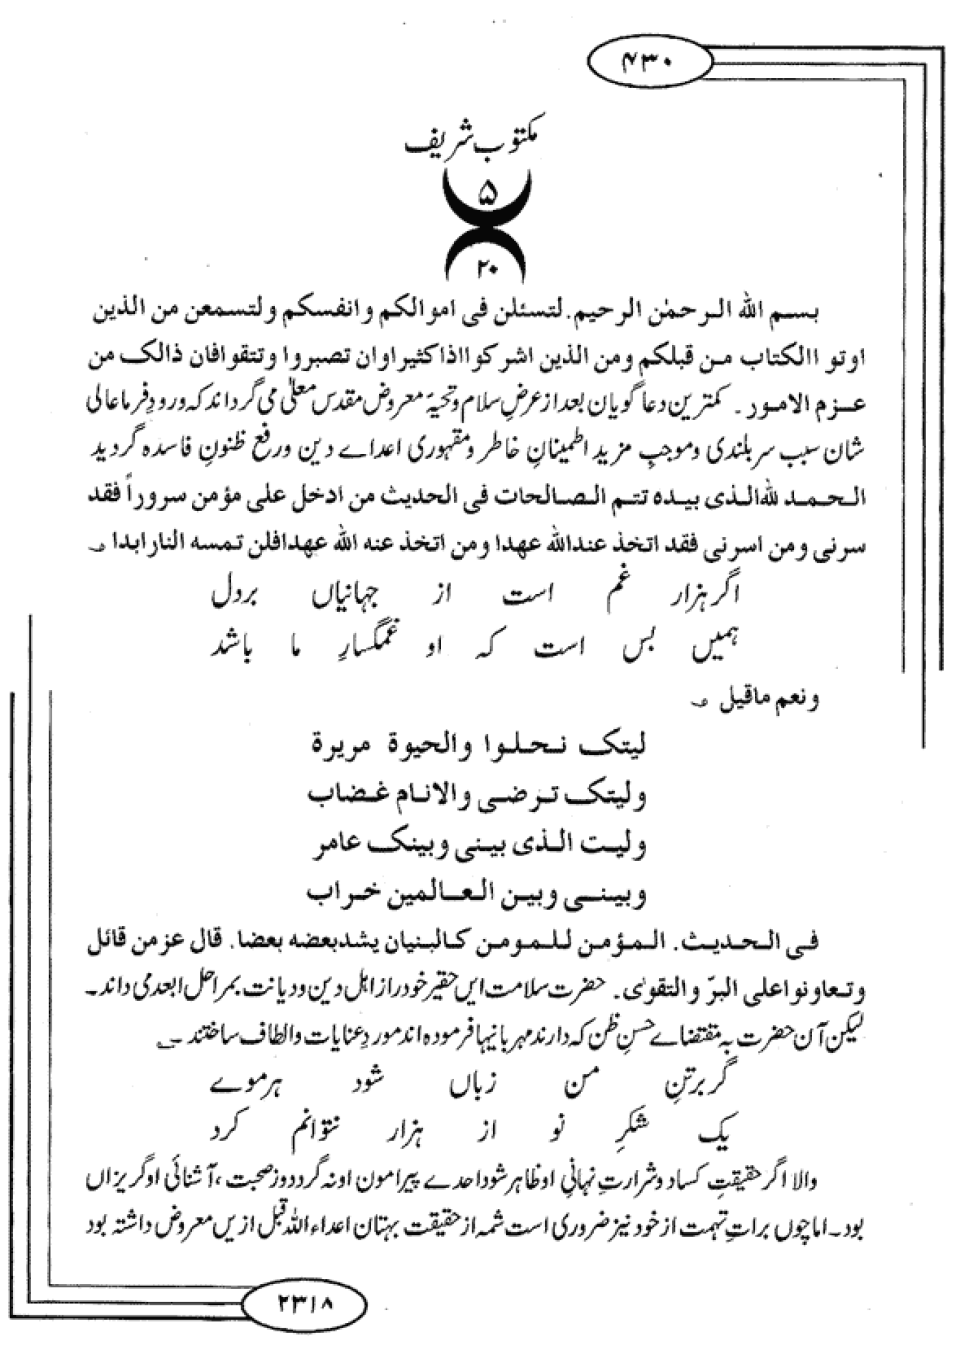 ۴۳۰
مکتوب شریف
۵
۲۰
بسم الله الرحمٰن الرحیم. لتسئلن فی اموالکم و انفسکم و لتسمعن من الذین
اوتو االکتاب من قبلکم ومن الذین اشرکوااذاکثیراوان تصبروا وتتقوافان ذالک من
عزم الامور۔ کمترین دعا گویان بعد از عرضِ سلام وتحیۂ معروض مقدس معلیٰ می گرداند کہ ورودِ فرماعالی
شان سبب سربلندی وموجبِ مزید اطمینانِ خاطر ومقہوری اعداے دین ورفع ظنونِ فاسدہ گردید
الحمد للہ الذی بیدہ تتم الصالحات فی الحدیث من ادخل علی مؤمن سروراً فقد
سرنی ومن اسرنی فقد اتخذ عندالله عهدا ومن اتخذ عنه الله عهدافلن تمسه النارابدا ؎
اگر ہزار غم است از جہانیاں بردل
ہمیں بس است کہ او غمگسارِ ما باشد
ونعم ماقیل ؎
لیتک نحلوا والحیوة مریرة
ولیتک ترضی والانام غضاب
ولیت الذی بینی وبینک عامر
وبینی وبین العالمین خراب
فی الحدیث. المؤمن للمومن کالبنیان یشدبعضه بعضا. قال عزمن قائل
وتعاونواعلی البرّ والتقویٰ. حضرت سلامت ایں حقیر خود را از اہل دین ودیانت بمراحل ابعد می داند۔
لیکن آن حضرت بہ مقتضاے حسنِ ظن کہ دارند مہربانیہا فرمودہ اند موردِ عنایات والطاف ساختند ؎
گر برتنِ من زباں شود ہر موے
یک شکرِ نو از ہزار نتوانم کرد
والا اگر حقیقتِ کساد وشرارتِ نہانیِ او ظاہر شود احدے پیرامون اونہ گردد وزصحبت، آشنائی او گریزاں
بود۔ اما چوں براتِ تہمت از خود نیز ضروری است شمہ از حقیقت بہتان اعداء اللہ قبل ازیں معروض داشتہ بود
۲۳۱۸